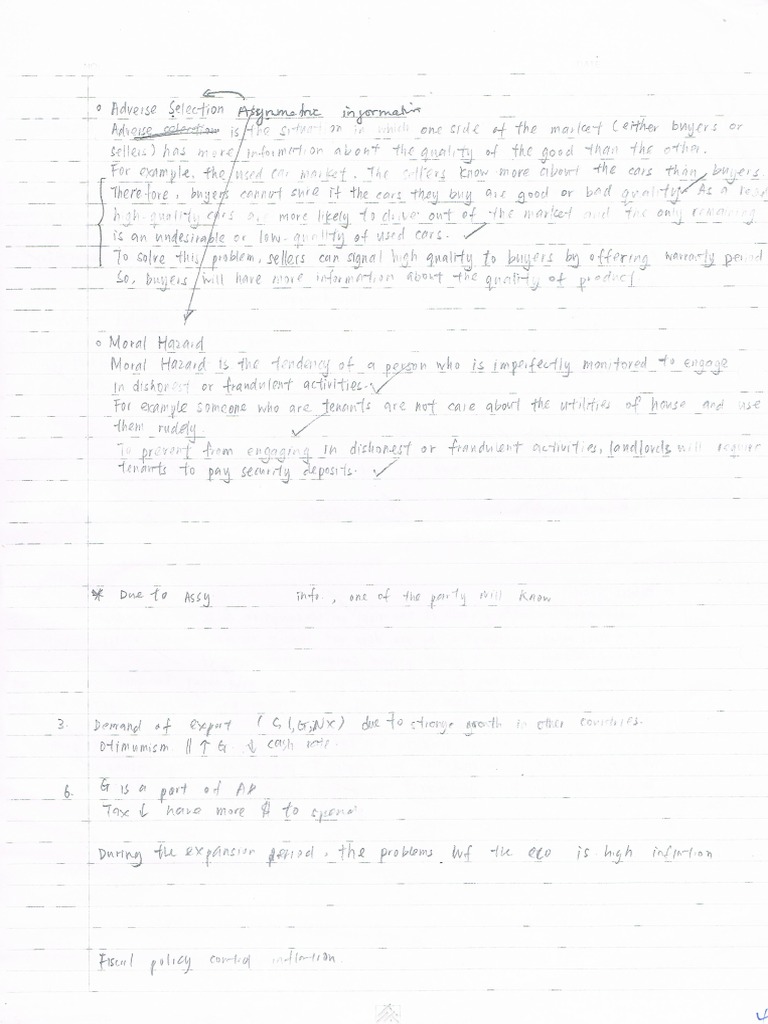 Adverse Selection Asymmetric informatin
Adverse selection is the situation in which one side of the market (either buyers or
sellers) has more information about the quality of the good than the other.
For example, the used car market. The sellers know more about the cars than buyers.
Therefore, buyers cannot sure if the cars they buy are good or bad quality. As a
high-quality cars are more likely to drive out of the market and the only remaining
is an undesirable or low-quality of used cars.
To solve this problem, sellers can signal high quality to buyers by offering warranty period
So, buyers will have more information about the quality of product
Moral Hazard
Moral Hazard is the tendency of a person who is imperfectly monitored to engage
in dishonest or fraudulent activities.
For example someone who are tenants are not care about the utilities of house and use
them rudely.
To prevent from engaging in dishonest or fraudulent activities, landlords will require
tenants to pay security deposits.
* Due to Assy info., one of the party will know
3. Demand of export (C, I, G, NX) due to stronge growth in other countries.
Otimumism || ↑ G ↓ cash rate.
6. G is a part of AD
Tax ↓ have more $ to spend
During the expansion period, the problems of the eco is high inflation
Fiscal policy control inflation.